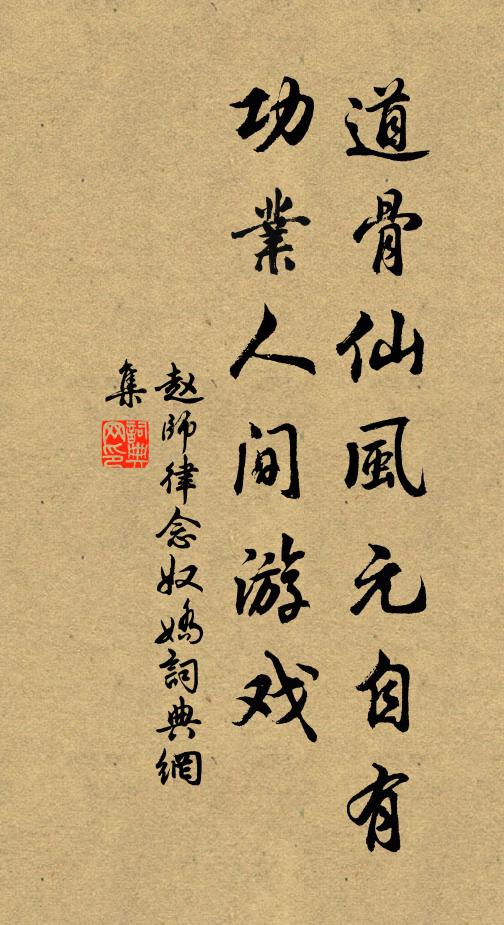 道骨仙風元自有
功業人间游戏
赵師律念奴嬌詞典網
集
詞典
网印